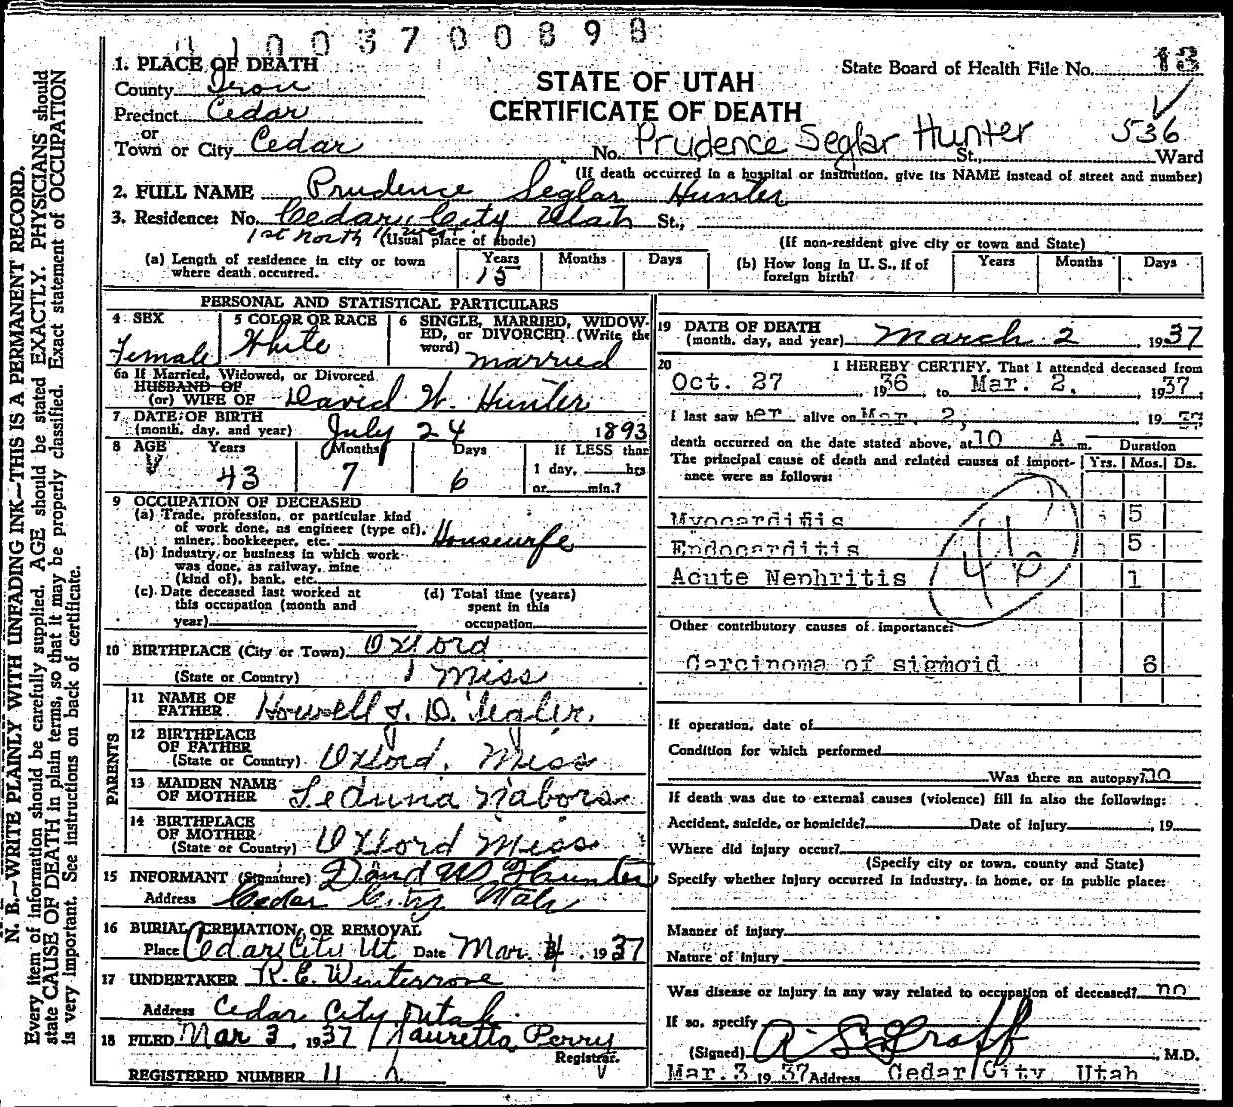 1 1 0 0 3 7 0 0 8 9 8
1. PLACE OF DEATH
County Iron
Precinct Cedar
or
Town or City Cedar
STATE OF UTAH
CERTIFICATE OF DEATH
State Board of Health File No. 13
536
No. Prudence Seglar Hunter St., Ward
(If death occurred in a hospital or institution, give its NAME instead of street and number)
2. FULL NAME Prudence Seglar Hunter
3. Residence: No. Cedar City Utah St.,
1st North West (Usual place of abode)
(If non-resident give city or town and State)
(a) Length of residence in city or town where death occurred. Years 15 Months Days
(b) How long in U. S., if of foreign birth? Years Months Days
PERSONAL AND STATISTICAL PARTICULARS
4 SEX Female
5 COLOR OR RACE White
6 SINGLE, MARRIED, WIDOWED, or DIVORCED (Write the word) married
6a If Married, Widowed, or Divorced
HUSBAND OF
(or) WIFE OF David W. Hunter
7 DATE OF BIRTH
(month, day, and year) July 24 1893
8 AGE Years Months Days If LESS than
43 7 6 1 day, hrs
or min.?
9 OCCUPATION OF DECEASED
(a) Trade, profession, or particular kind
of work done, as engineer (type of),
miner, bookkeeper, etc. Housewife
(b) Industry or business in which work
was done, as railway, mine
(kind of), bank, etc.
(c) Date deceased last worked at
this occupation (month and
year)
(d) Total time (years)
spent in this
occupation
10 BIRTHPLACE (City or Town) Oxford
(State or Country) Miss
PARENTS
11 NAME OF
FATHER Howell J. D. Seglar
12 BIRTHPLACE
OF FATHER
(State or Country) Oxford, Miss
13 MAIDEN NAME
OF MOTHER Leduna Nabors
14 BIRTHPLACE
OF MOTHER
(State or Country) Oxford Miss
15 INFORMANT (Signature) David W Hunter
Address Cedar City Utah
16 BURIAL, CREMATION, OR REMOVAL
Place Cedar City Ut Date Mar. 4, 1937
17 UNDERTAKER R. E. Winterrose
Address Cedar City Utah
18 FILED Mar 3, 1937 Lauretta Perry
Registrar.
REGISTERED NUMBER 11
19 DATE OF DEATH
(month, day, and year) March 2, 1937
20 I HEREBY CERTIFY, That I attended deceased from
Oct. 27, 1936, to Mar. 2, 1937.
I last saw her alive on Mar. 2, 1937
death occurred on the date stated above, at 10 A m. Duration
The principal cause of death and related causes of importance were as follows: Yrs. Mos. Ds.
Myocarditis 5
Endocarditis 5
Acute Nephritis 1
46
Other contributory causes of importance:
Carcinoma of sigmoid 6
If operation, date of
Condition for which performed
Was there an autopsy? no
If death was due to external causes (violence) fill in also the following:
Accident, suicide, or homicide? Date of injury , 19
Where did injury occur?
(Specify city or town, county and State)
Specify whether injury occurred in industry, in home, or in public place:
Manner of injury
Nature of injury
Was disease or injury in any way related to occupation of deceased? no
If so, specify
(Signed) A. L. Graff, M.D.
Mar. 3 1937 Address Cedar City Utah
N. B.—WRITE PLAINLY WITH UNFADING INK—THIS IS A PERMANENT RECORD.
Every item of information should be carefully supplied. AGE should be stated EXACTLY. PHYSICIANS should
state CAUSE OF DEATH in plain terms, so that it may be properly classified. Exact statement of OCCUPATION
is very important. See instructions on back of certificate.